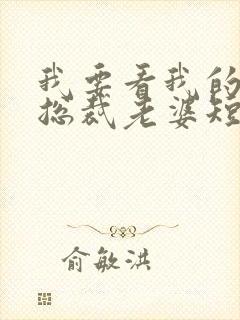 我要看我的
总裁老婆短
俞敏洪